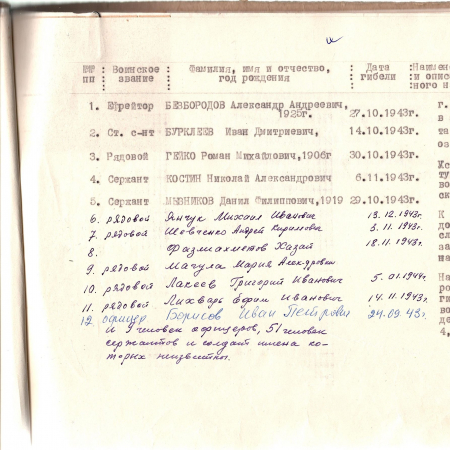 №№ : Воинское : Фамилия, имя и отчество, : Дата :
пп : звание : год рождения : гибели : и опис
1. Ефрейтор БЕЗБОРОДОВ Александр Андреевич, г.
1925г. 27.10.1943г. в
2. Ст. с-нт БУРКЛЕЕВ Иван Дмитриевич, 14.10.1943г.
3. Рядовой ГЕЙКО Роман Михайлович, 1906г 30.10.1943г.
4. Сержант КОСТИН Николай Александрович 6.11.1943г.
5. Сержант МЫЗНИКОВ Данил Филиппович, 1919 29.10.1943г.
6. рядовой Янчук Михаил Иванович 13.12.1943г.
7. рядовой Шевченко Андрей Кириллович 3.11.1943г.
8. Фазмахметов Хазай 18.11.1943г.
9. рядовой Магула Мария
10. рядовой Лакеев Григорий Иванович 5.01.1944г.
11. рядовой Лихварь Ефим Иванович 14.11.1943г.
12. офицер Борисов Иван Петрович 24.09.43г.
И 9 человек офицеров, 51 человек
сержантов и солдат имена ко-
торых неизвестны.